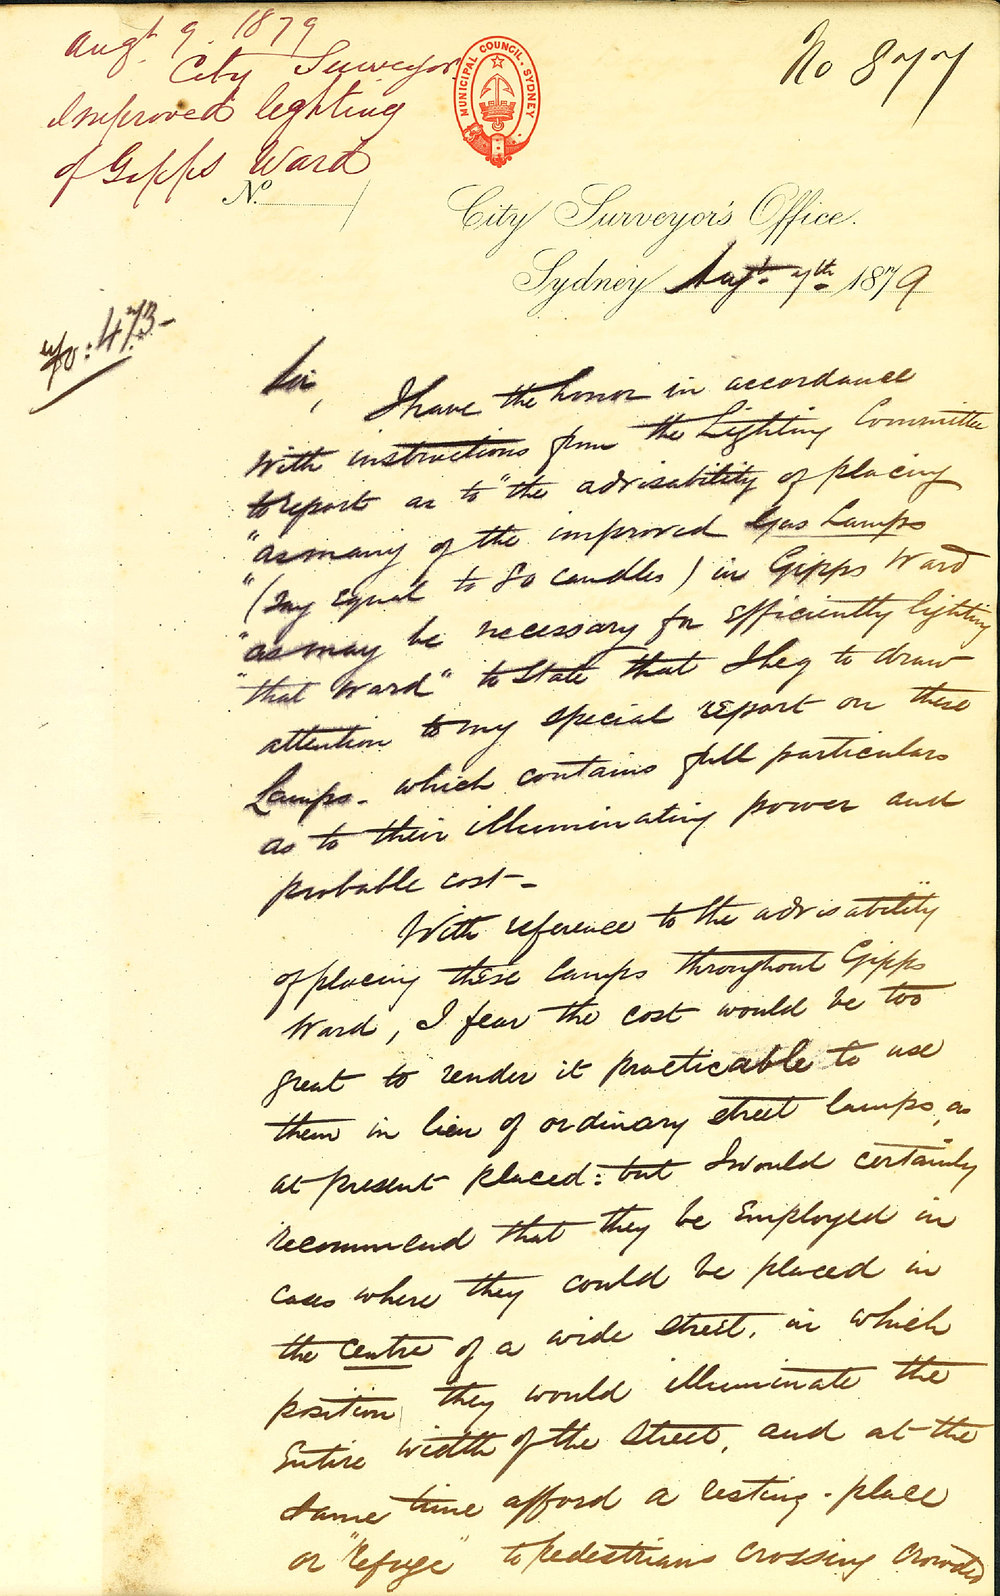 Augt 9. 1879
City Surveyor
Improved lighting
of Gipps Ward
No 877
MUNICIPAL COUNCIL. SYDNEY
No.
City Surveyor's Office.
Sydney Augt. 7th 1879
No: 473-
Sir,
I have the honor in accordance
With instructions from the Lighting Committee
to report as to "the advisability of placing
"as many of the improved Gas Lamps
"(say equal to 80 candles) in Gipps Ward
"as may be necessary for efficiently lighting
"that Ward" to State that I beg to draw
attention to my special report on these
Lamps- which contains full particulars
as to their illuminating power and
probable cost-
With reference to the advisability
of placing these lamps throughout Gipps
Ward, I fear the cost would be too
great to render it practicable to use
them in lieu of ordinary street lamps, as
at present placed: but I would certainly
recommend that they be employed in
cases where they could be placed in
the centre of a wide street, in which
position they would illuminate the
Entire width of the Street, and at the
same time afford a resting-place
or "refuge" to pedestrians crossing crowded